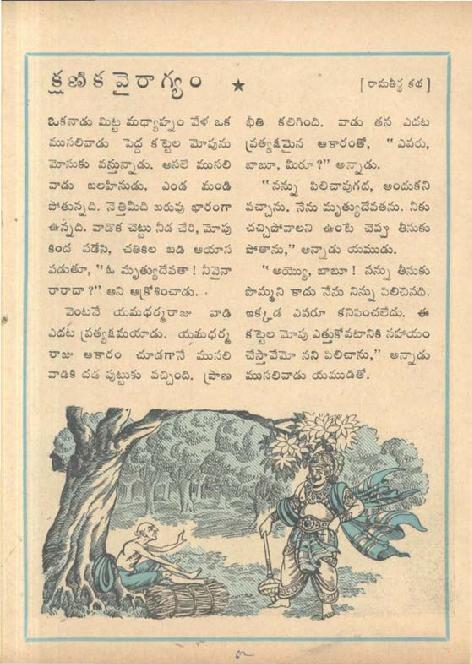 క్షణిక వైరాగ్యం ★ [ రామతీర్థ కథ ]
ఒకనాడు మిట్ట మధ్యాహ్నం వేళ ఒక
ముసలివాడు పెద్ద కట్టెల మోపును
మోసుకు వస్తున్నాడు. అసలే ముసలి
వాడు బలహీనుడు. ఎండ మండి
పోతున్నది. నెత్తిమీది బరువు భారంగా
ఉన్నది. వాడొక చెట్టు నీడ చేరి, మోపు
కింద పడేసి, చతికిల బడి ఆయాస
పడుతూ, "ఓ మృత్యుదేవతా ! నీవైనా
రారాదా ?" అని ఆక్రోశించాడు.
వెంటనే యమధర్మరాజు వాడి
ఎదట ప్రత్యక్షమయాడు. యమధర్మ
రాజు ఆకారం చూడగానే ముసలి
వాడికి దడ పుట్టుకు వచ్చింది. ప్రాణ
భీతి కలిగింది. వాడు తన ఎదట
ప్రత్యక్షమైన ఆకారంతో, " ఎవరు,
బాబూ, మీరూ ?" అన్నాడు.
"నన్ను పిలిచావుగద, అందుకని
వచ్చాను. నేను మృత్యుదేవతను. నీకు
చచ్చిపోవాలని ఉంటే చెప్పు తీసుకు
పోతాను," అన్నాడు యముడు.
"అయ్యొ, బాబూ ! నన్ను తీసుకు
పొమ్మని కాదు నేను నిన్ను పిలిచినది.
ఇక్కడ ఎవరూ కనిపించలేదు. ఈ
కట్టెల మోపు ఎత్తుకోవటానికి సహాయం
చేస్తావేమో నని పిలిచాను," అన్నాడు
ముసలివాడు యముడితో.